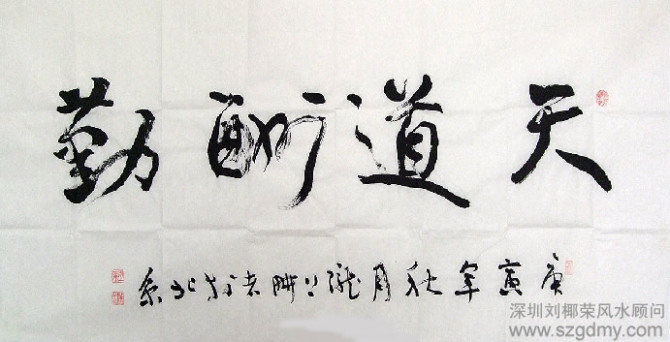 天道酬勤
庚寅年秋月
北京
深圳刘椰荣风水顾问
www.szgdmy.com